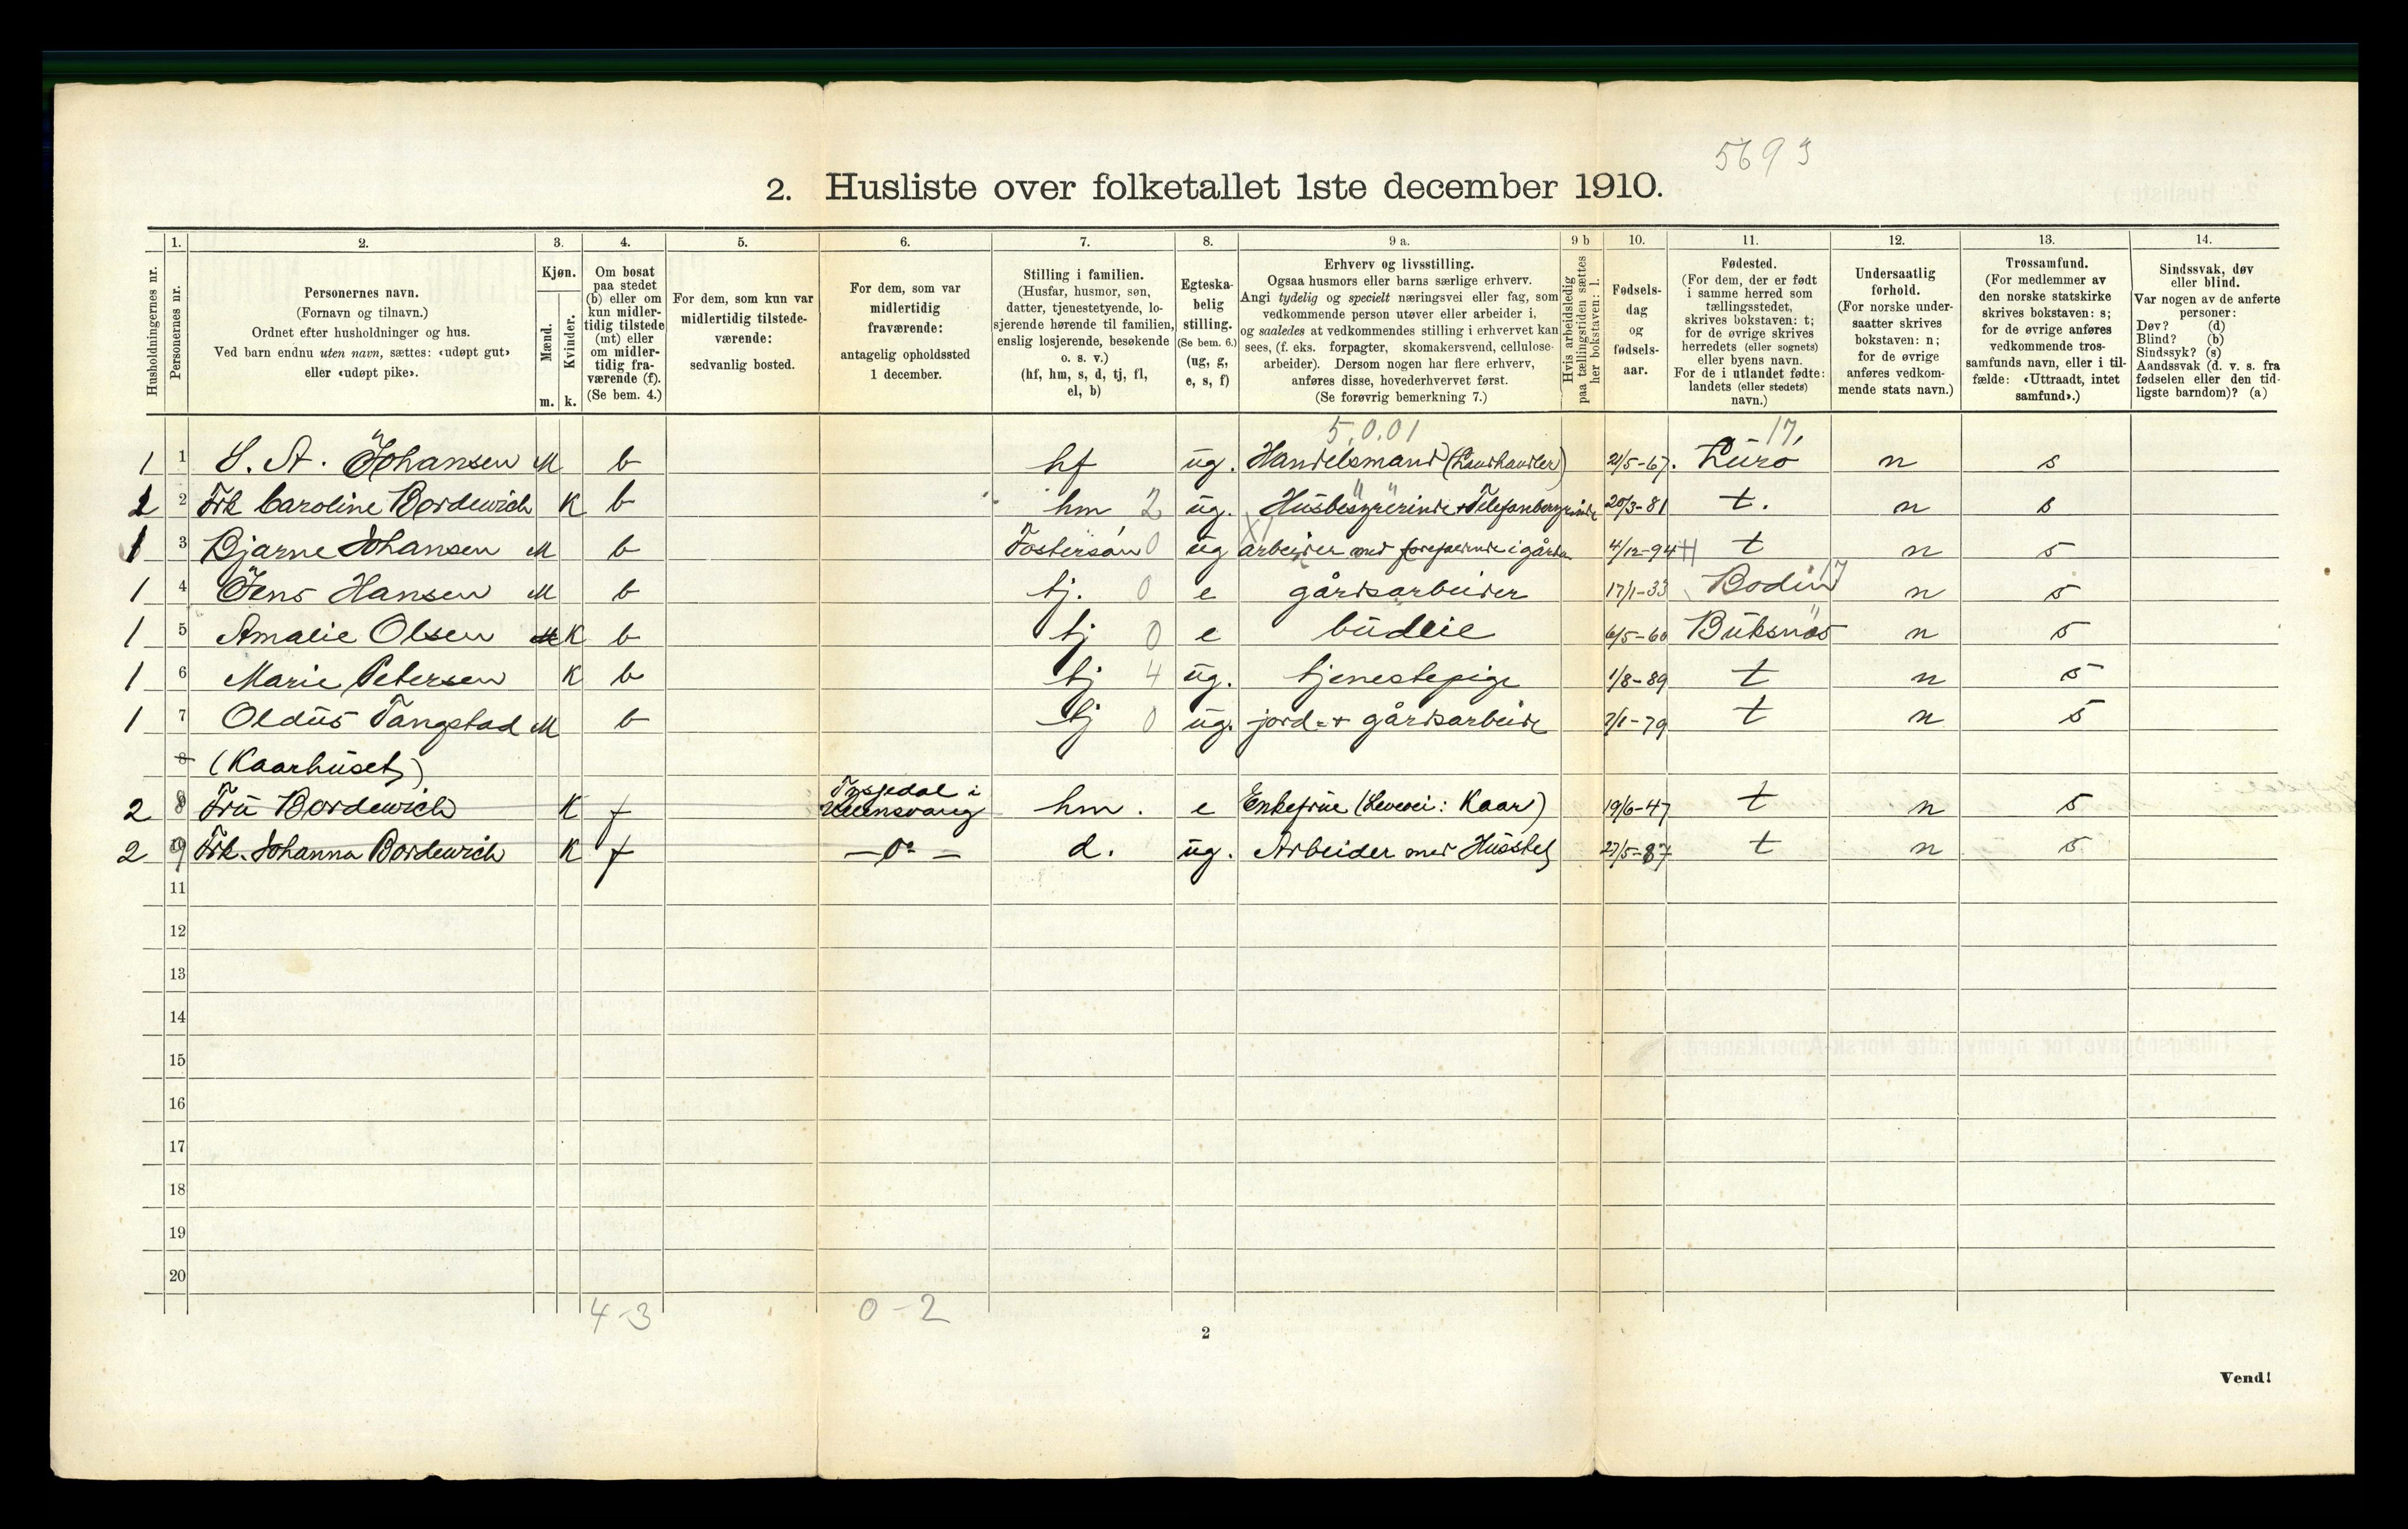 5693
2. Husliste over folketallet 1ste december 1910.
Husholdningernes nr.
1. Personernes nr.
2. Personernes navn.
(Fornavn og tilnavn.)
Ordnet efter husholdninger og hus.
Ved barn endnu uten navn, sættes: «udøpt gut»
eller «udøpt pike».
3. Kjøn.
Mænd. Kvinder.
m. k.
4. Om bosat
paa stedet
(b) eller om
kun midler-
tidig tilstede
(mt) eller
om midler-
tidig fra-
værende (f).
(Se bem. 4.)
5. For dem, som kun var
midlertidig tilstede-
værende:
sedvanlig bosted.
6. For dem, som var
midlertidig
fraværende:
antagelig opholdssted
1 december.
7. Stilling i familien.
(Husfar, husmor, søn,
datter, tjenestetyende, lo-
sjerende hørende til familien,
enslig losjerende, besøkende
o. s. v.)
(hf, hm, s, d, tj, fl,
el, b)
8. Egteska-
belig
stilling.
(Se bem. 6.)
(ug, g,
e, s, f)
9 a. Erhverv og livsstilling.
Ogsaa husmors eller barns særlige erhverv.
Angi tydelig og specielt næringsvei eller fag, som
vedkommende person utøver eller arbeider i,
og saaledes at vedkommendes stilling i erhvervet kan
sees, (f. eks. forpagter, skomakersvend, cellulose-
arbeider). Dersom nogen har flere erhverv,
anføres disse, hovederhvervet først.
(Se forøvrig bemerkning 7.)
9 b Hvis arbeidsledig
paa tællingstiden sættes
her bokstaven: l.
10. Fødsels-
dag
og
fødsels-
aar.
11. Fødested.
(For dem, der er født
i samme herred som
tællingsstedet,
skrives bokstaven: t;
for de øvrige skrives
herredets (eller sognets)
eller byens navn.
For de i utlandet fødte:
landets (eller stedets)
navn.)
12. Undersaatlig
forhold.
(For norske under-
saatter skrives
bokstaven: n;
for de øvrige
anføres vedkom-
mende stats navn.)
13. Trossamfund.
(For medlemmer av
den norske statskirke
skrives bokstaven: s;
for de øvrige anføres
vedkommende tros-
samfunds navn, eller i til-
fælde: «Uttraadt, intet
samfund».)
14. Sindssvak, døv
eller blind.
Var nogen av de anførte
personer:
Døv? (d)
Blind? (b)
Sindssyk? (s)
Aandssvak (d. v. s. fra
fødselen eller den tid-
ligste barndom)? (a)
5.0.01 17,
1 1 S. A. Johansen M b hf ug. Handelsmand (Landhandler) 21/5-67. Lurö n s
2 Frk Caroline Bordewich K b hm 2 ug. Husbestyrerinde + Telefonbestyrerinde 20/3-81 t. n s
1 3 Bjarne Johansen M b Fostersön 0 ug arbeider med i gården 4/12-94 t n s
1 4 Jens Hansen M b tj. 0 e gårdsarbeider 17/1-33 Bodin 17 n s
1 5 Amalie Olsen K b tj 0 e budeie 6/5-60 Buksnäs n s
1 6 Marie Petersen K b tj 4 ug. tjenestepige 1/8-89 t n s
1 7 Oldus Tangstad M b tj 0 ug. jord- + gårdsarbeide 7/1-79 t n s
8 (Kaarhuset)
2 8 Fru Bordewich K f Tyssedal i Ullensvang hm. e Enkefrue (Levevei: Kaar) 19/6-47 t n s
2 9 Frk. Johanna Bordewich K f — do — d. ug. Arbeider med Husstel 27/5-87 t n s
11
12
13
14
15
16
17
18
19
20
4-3 0-2
2
Vend!